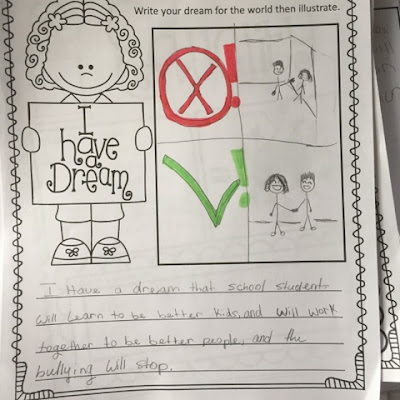 Write your dream for the world then illustrate.
I
have
a
Dream
I Have a dream that school students
will learn to be better kids, and will work
together to be better people, and the
bullying will stop.